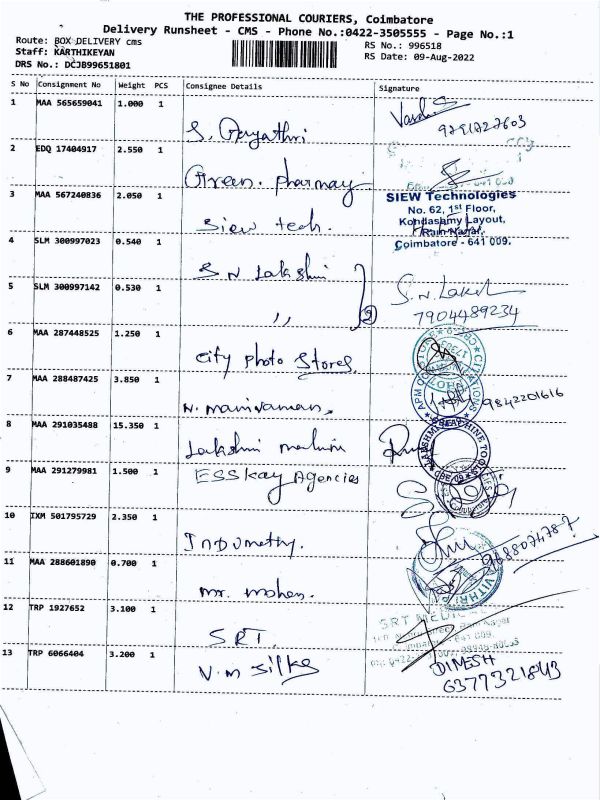 THE PROFESSIONAL COURIERS, Coimbatore
Delivery Runsheet - CMS - Phone No.:0422-3505555 - Page No.:1
Route: BOX DELIVERY cms
RS No.: 996518
Staff: KARTHIKEYAN
RS Date: 09-Aug-2022
DRS No.: DCJB99651801
S No Consignment No Weight PCS Consignee Details Signature
1 MAA 565659041 1.000 1 S. Gayathri
2 EDQ 17404917 2.550 1 Green. pharmay
3 MAA 567240836 2.050 1 Siew tech.
SIEW Technologies
No. 62, 1st Floor,
Kondasamy Layout,
Ram Nagar,
Coimbatore - 641 009.
4 SLM 300997023 0.540 1 S N Lakshmi
5 SLM 300997142 0.530 1 ,, 2 S. N. Laksh
7904489234
6 MAA 287448525 1.250 1 City photo Stores
7 MAA 288487425 3.850 1 N. Manivannan. 9842201616
8 MAA 291035488 15.350 1 Lakshmi
9 MAA 291279981 1.500 1 ESSKay Agencies
10 IXM 501795729 2.350 1 Indumathy.
11 MAA 288601890 0.700 1 Mr. Mohan.
12 TRP 1927652 3.100 1 SRT
13 TRP 6066404 3.200 1 V.M Silks
DINESH
6377321843